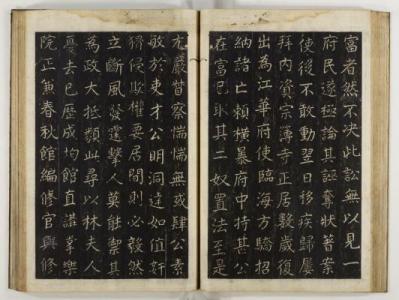 富者然不決此訟無以見一
府民遂極論其誣奪狀書案
使後不敢動翌日移疾歸屢
拜內資宗簿寺正居數歲復
出為江華府使臨海方驕招
納諸亡賴橫暴府中持其公
在富民取其二奴置法至是
尤嚴督察惴惴無敢肆公素
敏於吏才公明洞達如值奸
猾侵欺權要居間則必毅然
立斷風發霆擊人莫能禦其
為政大抵類此尋以林夫人
憂去已歷成均館直講掌樂
院正兼春秋館編修官與修